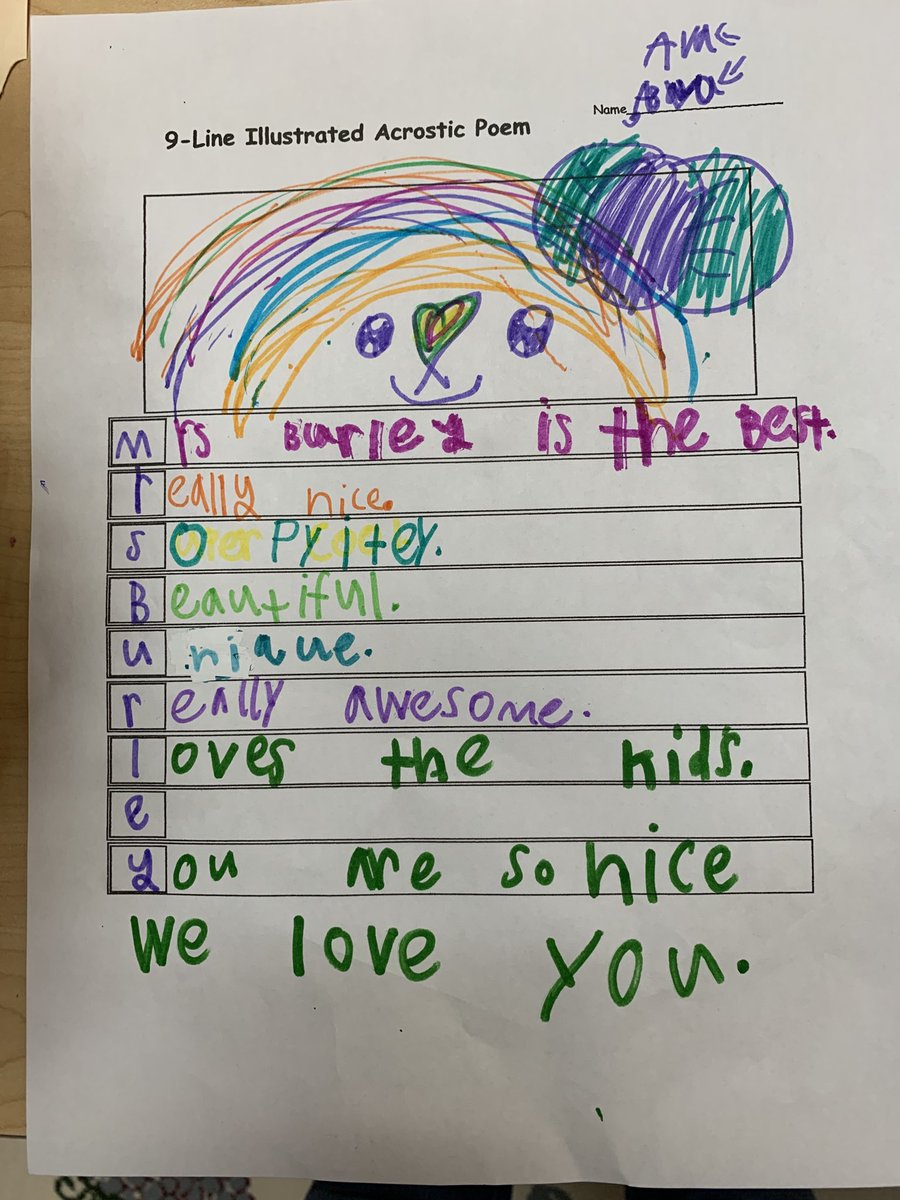 AMC
Name
9-Line Illustrated Acrostic Poem
Mrs Burley is the Best.
really nice.
so Pyitey.
Beautiful.
unique.
really awesome.
loves the kids.
e
you are so nice
we love you.